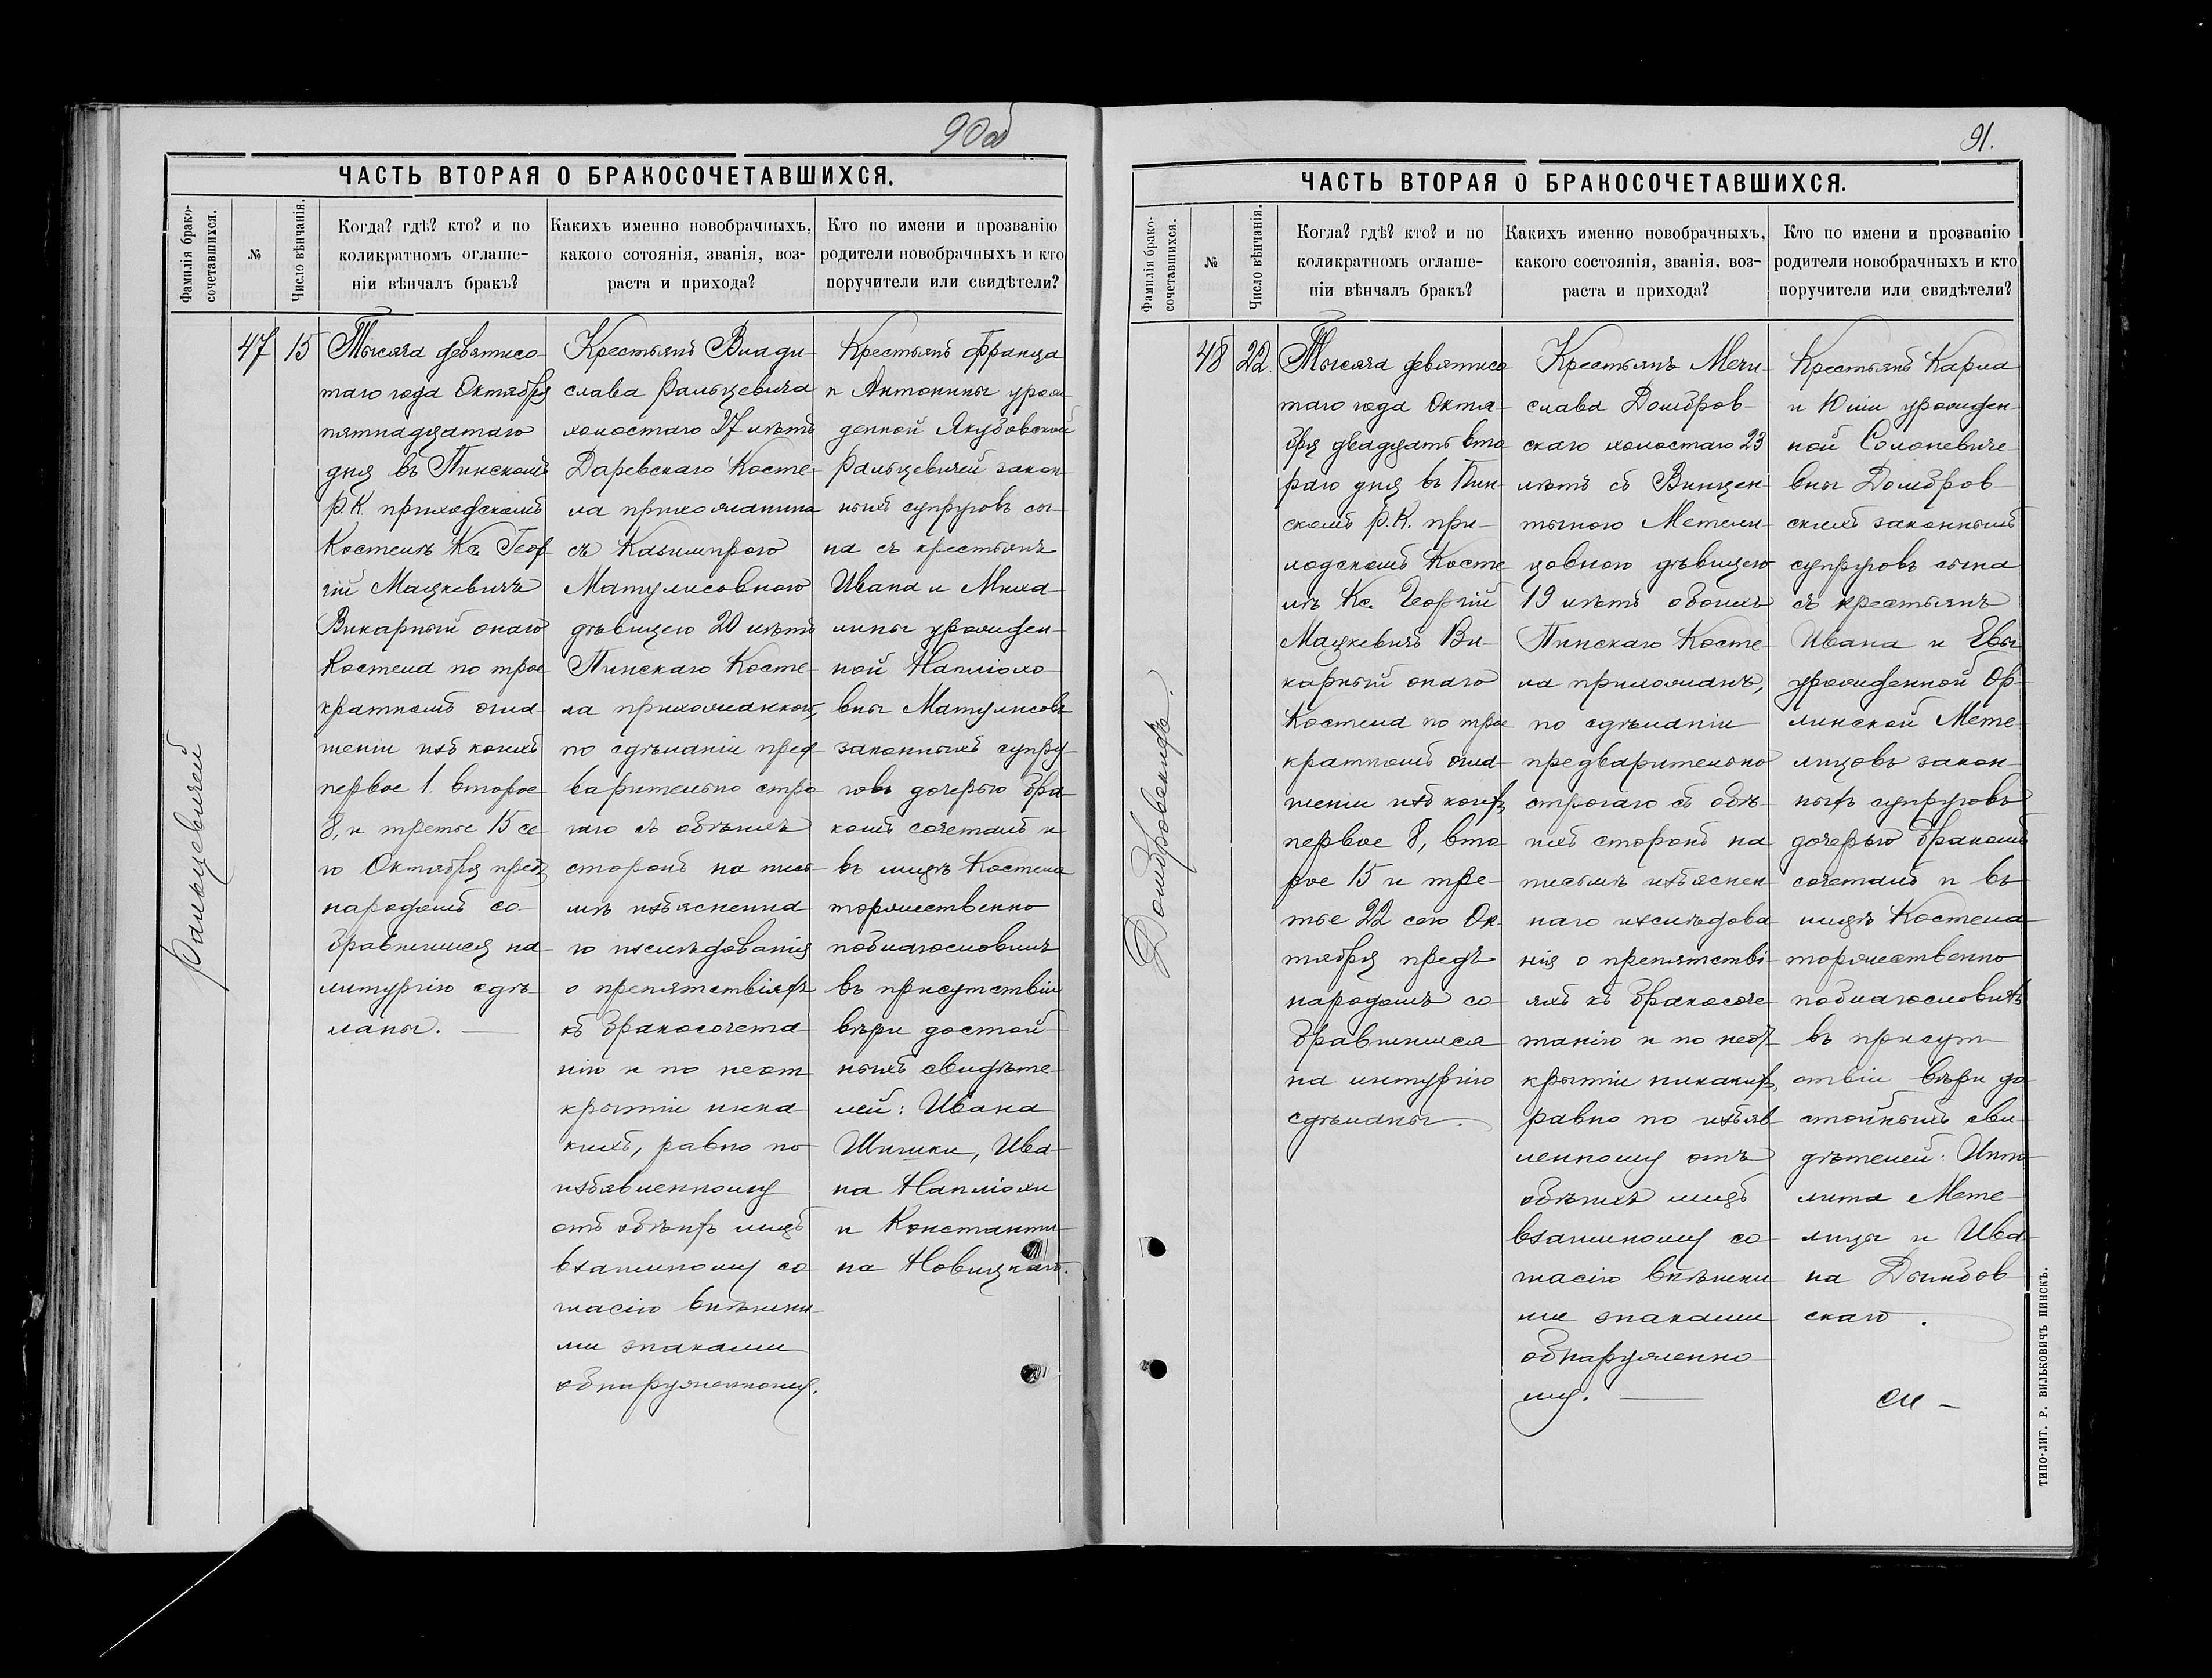 90об
ЧАСТЬ ВТОРАЯ О БРАКОСОЧЕТАВШИХСЯ.
Фамилія брако-
сочетавшихся.
№
Число вѣнчанія.
Когда? гдѣ? кто? и по
коликратномъ оглаше-
ніи вѣнчалъ бракъ?
Какихъ именно новобрачныхъ,
какого сотоянія, званія, воз-
раста и прихода?
Кто по имени и прозванію
родители новобрачныхъ и кто
поручители или свидѣтели?
Ральцевичей
47
15
Тысяча девятисо-
таго года Октября
пятнадцатаго
дня въ Пинскомъ
Р.К. приходскомъ
Костелѣ Кс. Геор-
гій Мацкевичъ
Викарный онаго
Костела по трое
кратномъ огла-
шеніи изъ коихъ
первое 1. второе
8, и третье 15 се-
го Октября предъ
народомъ со-
бравшимся на
литургію сдѣ-
ланы.
Крестьянъ Влади-
слава Ральцевича
холостаго 27 лѣтъ
Даревскаго Косте-
ла прихожанина
съ Казимирою
Матулисовною
дѣвицею 20 лѣтъ
Пинскаго Косте-
ла прихожанкою,
по сдѣланіи пред
варительно стро
гаго съ обѣихъ
сторонъ на пись-
мѣ изъясненна-
го изслѣдованія
о препятствіяхъ
къ бракосочета-
нію и по неот
крытіи ника-
кихъ, равно по
изъявленному
отъ обѣихъ лицъ
взаимному со
гласію внѣшни-
ми знаками
обнаруженному.
Крестьянъ Франца
и Антонины урож-
денной Якубовской
Ральцевичей закон-
ныхъ супруговъ сы-
на съ крестьянъ
Ивана и Миха-
лины урожден-
ной Наплюхо-
вны Матулисовъ
законныхъ супру-
говъ дочерью бра-
комъ сочеталъ и
въ лицѣ Костела
торжественно
поблагословилъ
въ присутствіи
вѣры достой-
ныхъ свидѣте-
лей: Ивана
Шишки, Ива-
на Наплюхи
и Константи-
на Новицкаго.
91.
ЧАСТЬ ВТОРАЯ О БРАКОСОЧЕТАВШИХСЯ.
Фамилія брако-
сочетавшихся.
№
Число вѣнчанія.
Когла? гдѣ? кто? и по
коликратномъ оглаше-
ніи вѣнчалъ бракъ?
Какихъ именно новобрачныхъ,
какого состоянія, званія, воз-
раста и прихода?
Кто по имени и прозванію
родители новобрачныхъ и кто
поручители или свидѣтели?
Домбровскихъ.
48
22.
Тысяча девятисо
таго года Октя-
бря двадцать вто
раго дня въ Пин-
скомъ Р.К. при-
ходскомъ Косте
лѣ Кс. Георгій
Мацкевичъ Ви-
карный онаго
Костела по трое
кратномъ огла-
шеніи изъ коихъ
первое 8, вто
рое 15 и тре-
тье 22 сего Ок-
тября предъ
народомъ со-
бравшимся
на литургію
сдѣланы.
Крестьянъ Мечи-
слава Домбров-
скаго холостаго 23
лѣтъ съ Винцен-
тыною Метели-
цовною дѣвицею
19 лѣтъ обоихъ
Пинскаго Косте-
ла прихожанъ,
по сдѣланіи
предварительно
строгаго съ обѣ-
ихъ сторонъ на
письмѣ изъяснен-
наго изслѣдова
нія о препятстві-
яхъ къ бракосоче-
танію и по неот-
крытіи никакихъ,
равно по изъяв-
ленному отъ
обѣихъ лицъ
взаимному со-
гласію внѣшни-
ми знаками
обнаруженно-
му.
Крестьянъ Карла
и Юліи урожден-
ной Солоневиче-
вны Домбров-
скихъ законныхъ
супруговъ сына
съ крестьянъ
Ивана и Евы
урожденной Ор-
линской Мете-
лицовъ закон-
ныхъ супруговъ
дочерью бракомъ
сочеталъ и въ
лицѣ Костела
торжественно
поблагословилъ
въ присут-
ствіи вѣры до-
стойныхъ сви-
дѣтелей: Иппо-
лита Мете-
лицы и Ива-
на Домбров
скаго.
ТИПО-ЛИТ. Р. ВИЛЬКОВИЧЪ ПИНСКЪ.